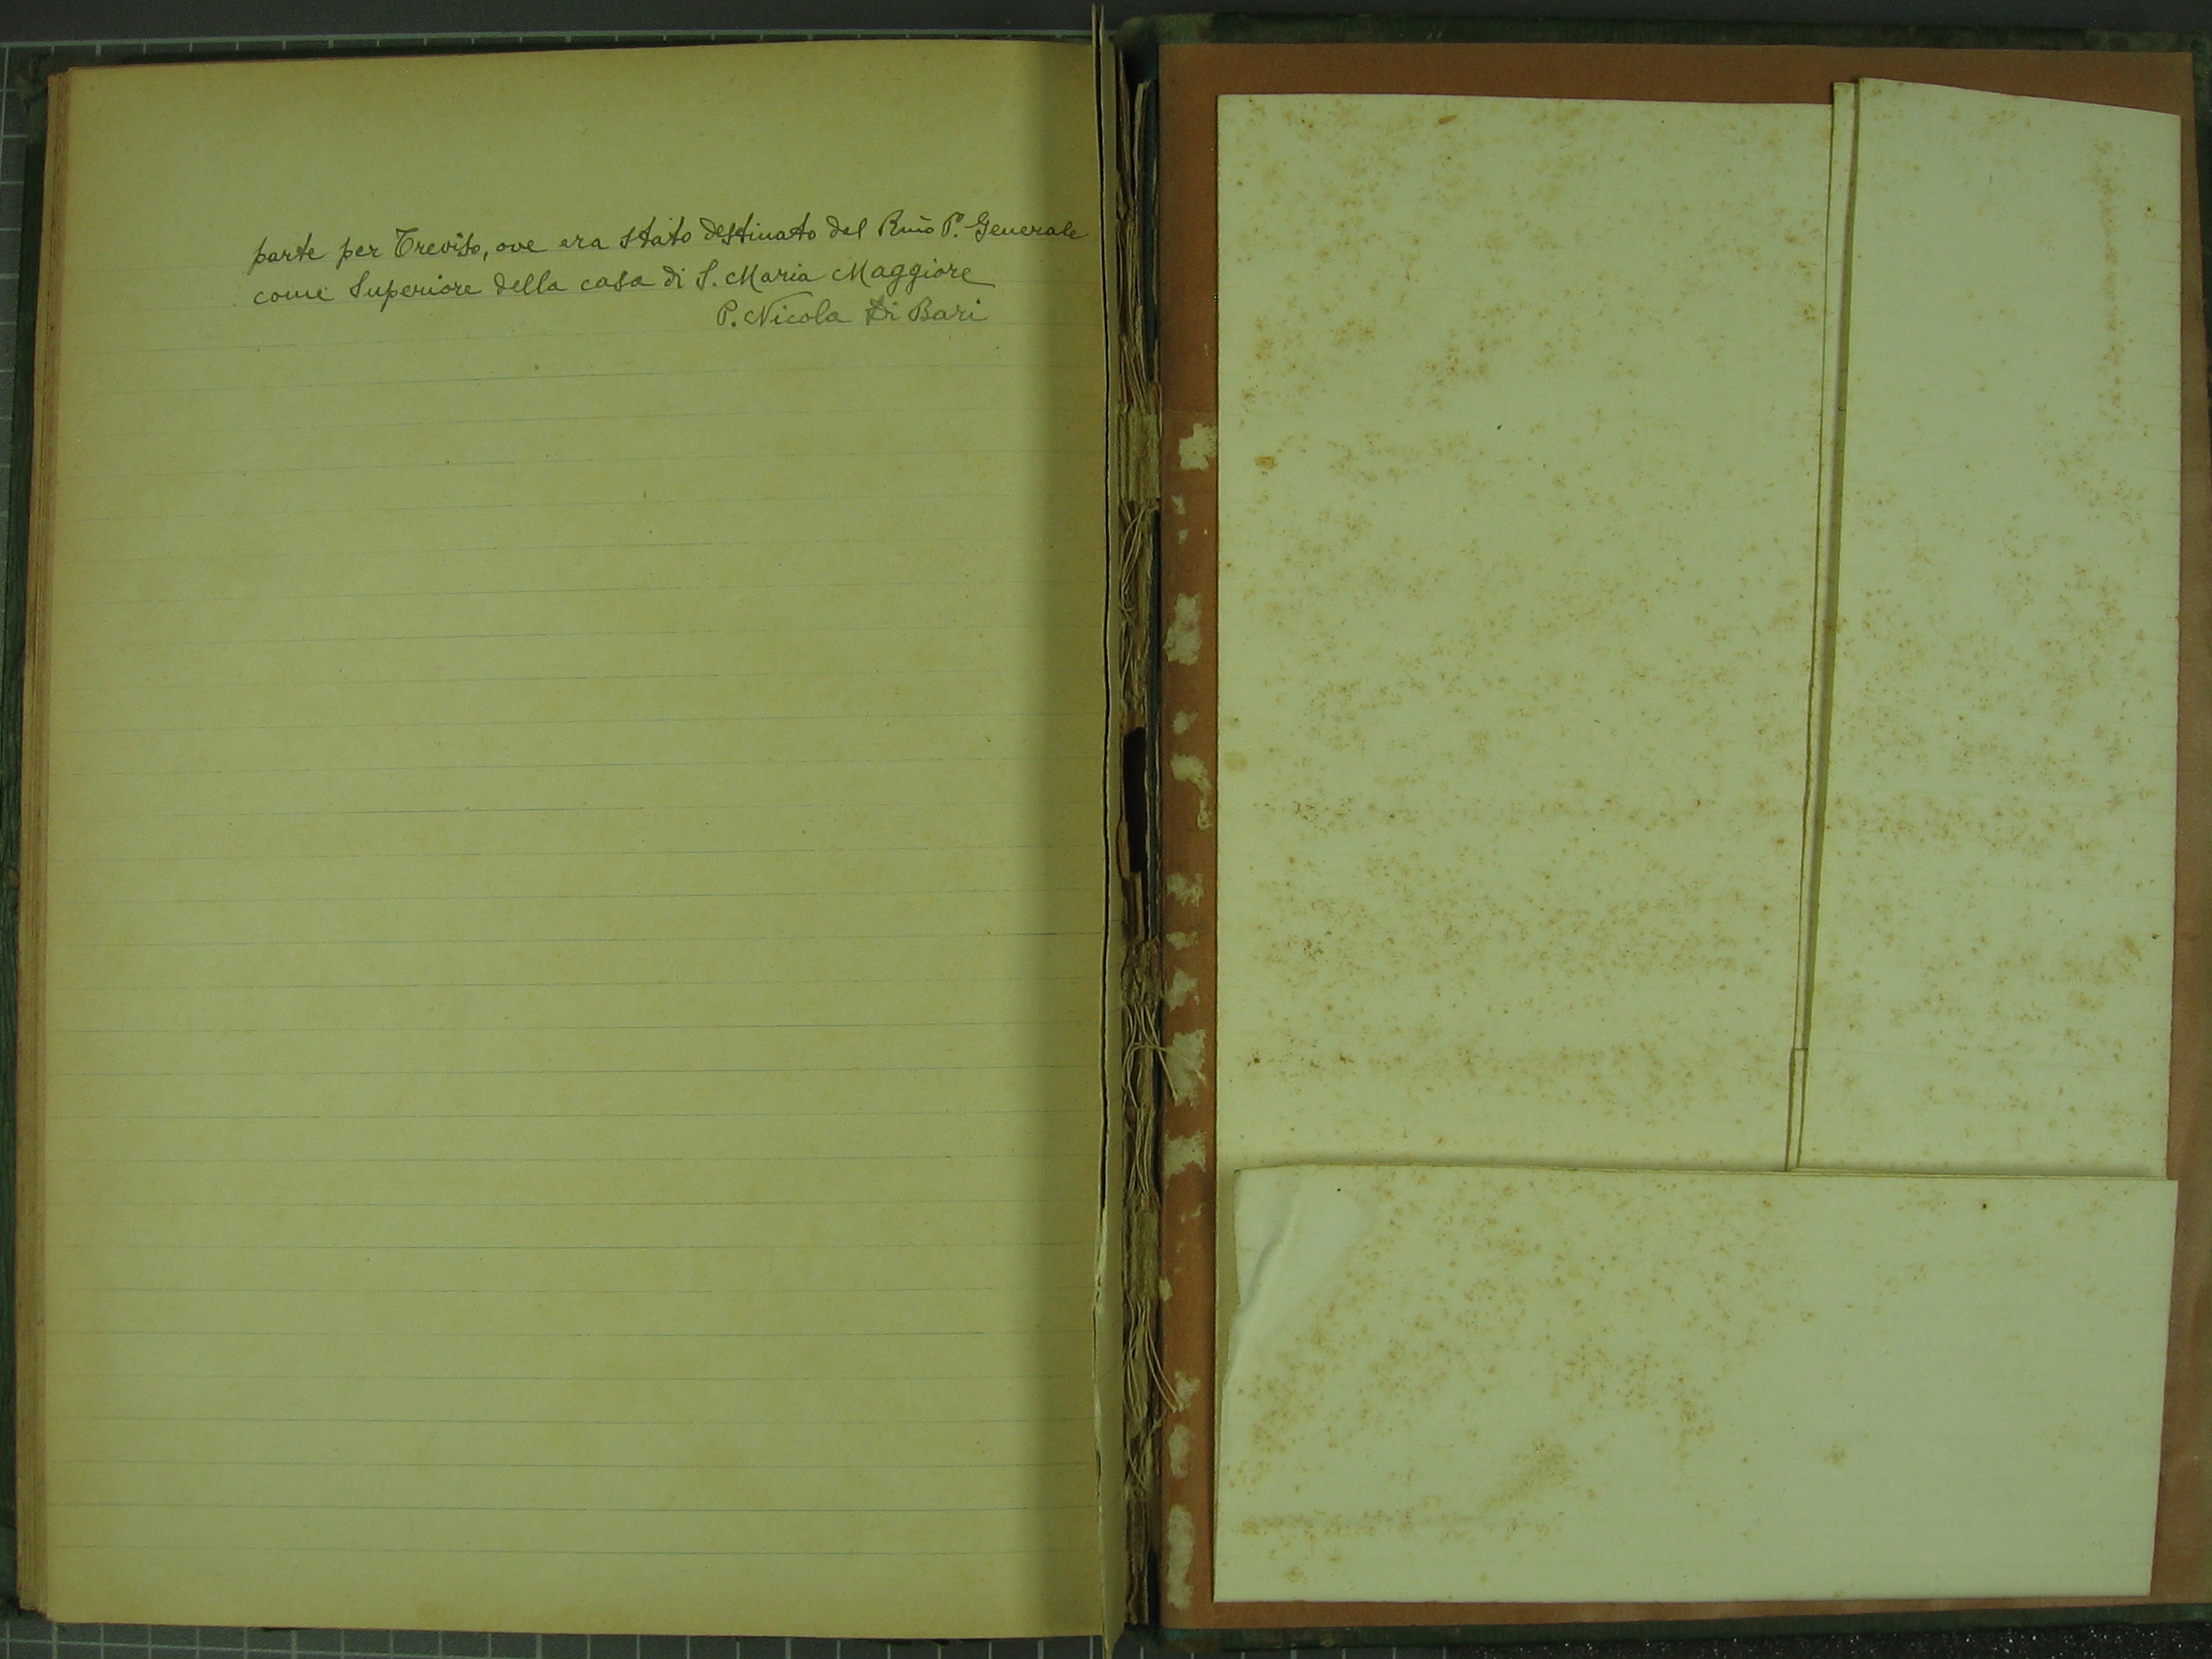 parte per Treviso, ove era stato destinato dal Rmo P. Generale
come Superiore della casa di S. Maria Maggiore
P. Nicola Di Bari